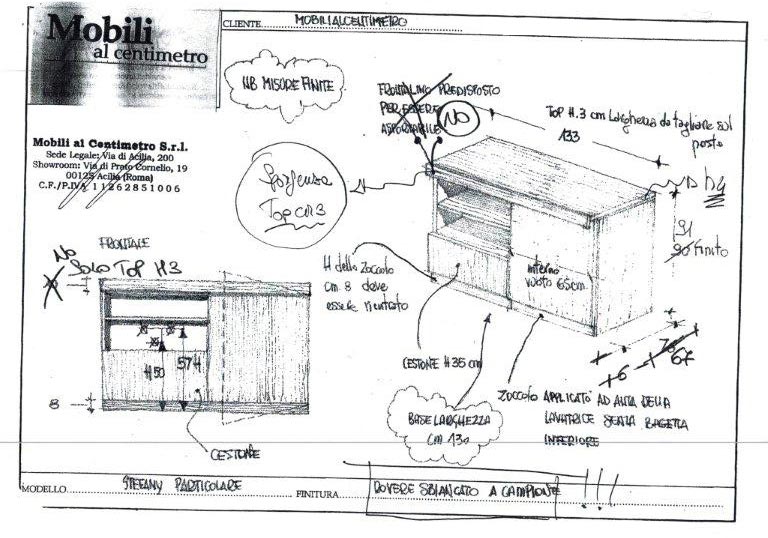 Mobili
al centimetro
CLIENTE MOBILIALCENTIMETRO
NB MISURE FINITE
FRONTALINO PREDISPOSTO
PER ESSERE
ASPORTABILE
NO
TOP H.3 cm Larghezza da tagliare sul
posto
133
Mobili al Centimetro S.r.l.
Sede Legale: Via di Acilia, 200
Showroom: Via di Prato Cornelio, 19
00125 Acilia (Roma)
C.F./P.IVA 11262851006
Sporgenza
TOP cm 3
h4
91
90 finito
FRONTALE
NO
SOLO TOP H3
H dello Zoccolo
cm 8 deve
essere rientrato
interno
vuoto 65cm
H50
57H
8
CESTONE
CESTONE H 35 cm
6
67
BASE LARGHEZZA
CM 130
ZOCCOLO APPLICATO AD ANTA DELLA
LAVATRICE SENZA BAGETTA
INFERIORE
MODELLO STEFANY PARTICOLARE
FINITURA ROVERE SBIANCATO A CAMPIONE !!!